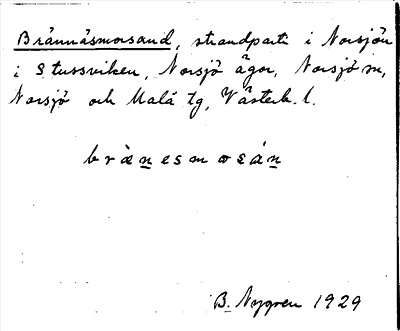 Brännäsmosand, strandparti i Norsjön
i Stussviken, Norsjö ägor, Norsjö sn,
Norsjö och Malå tg, Västerb. l.
brän̲esmosán̲
B. Nygren 1929